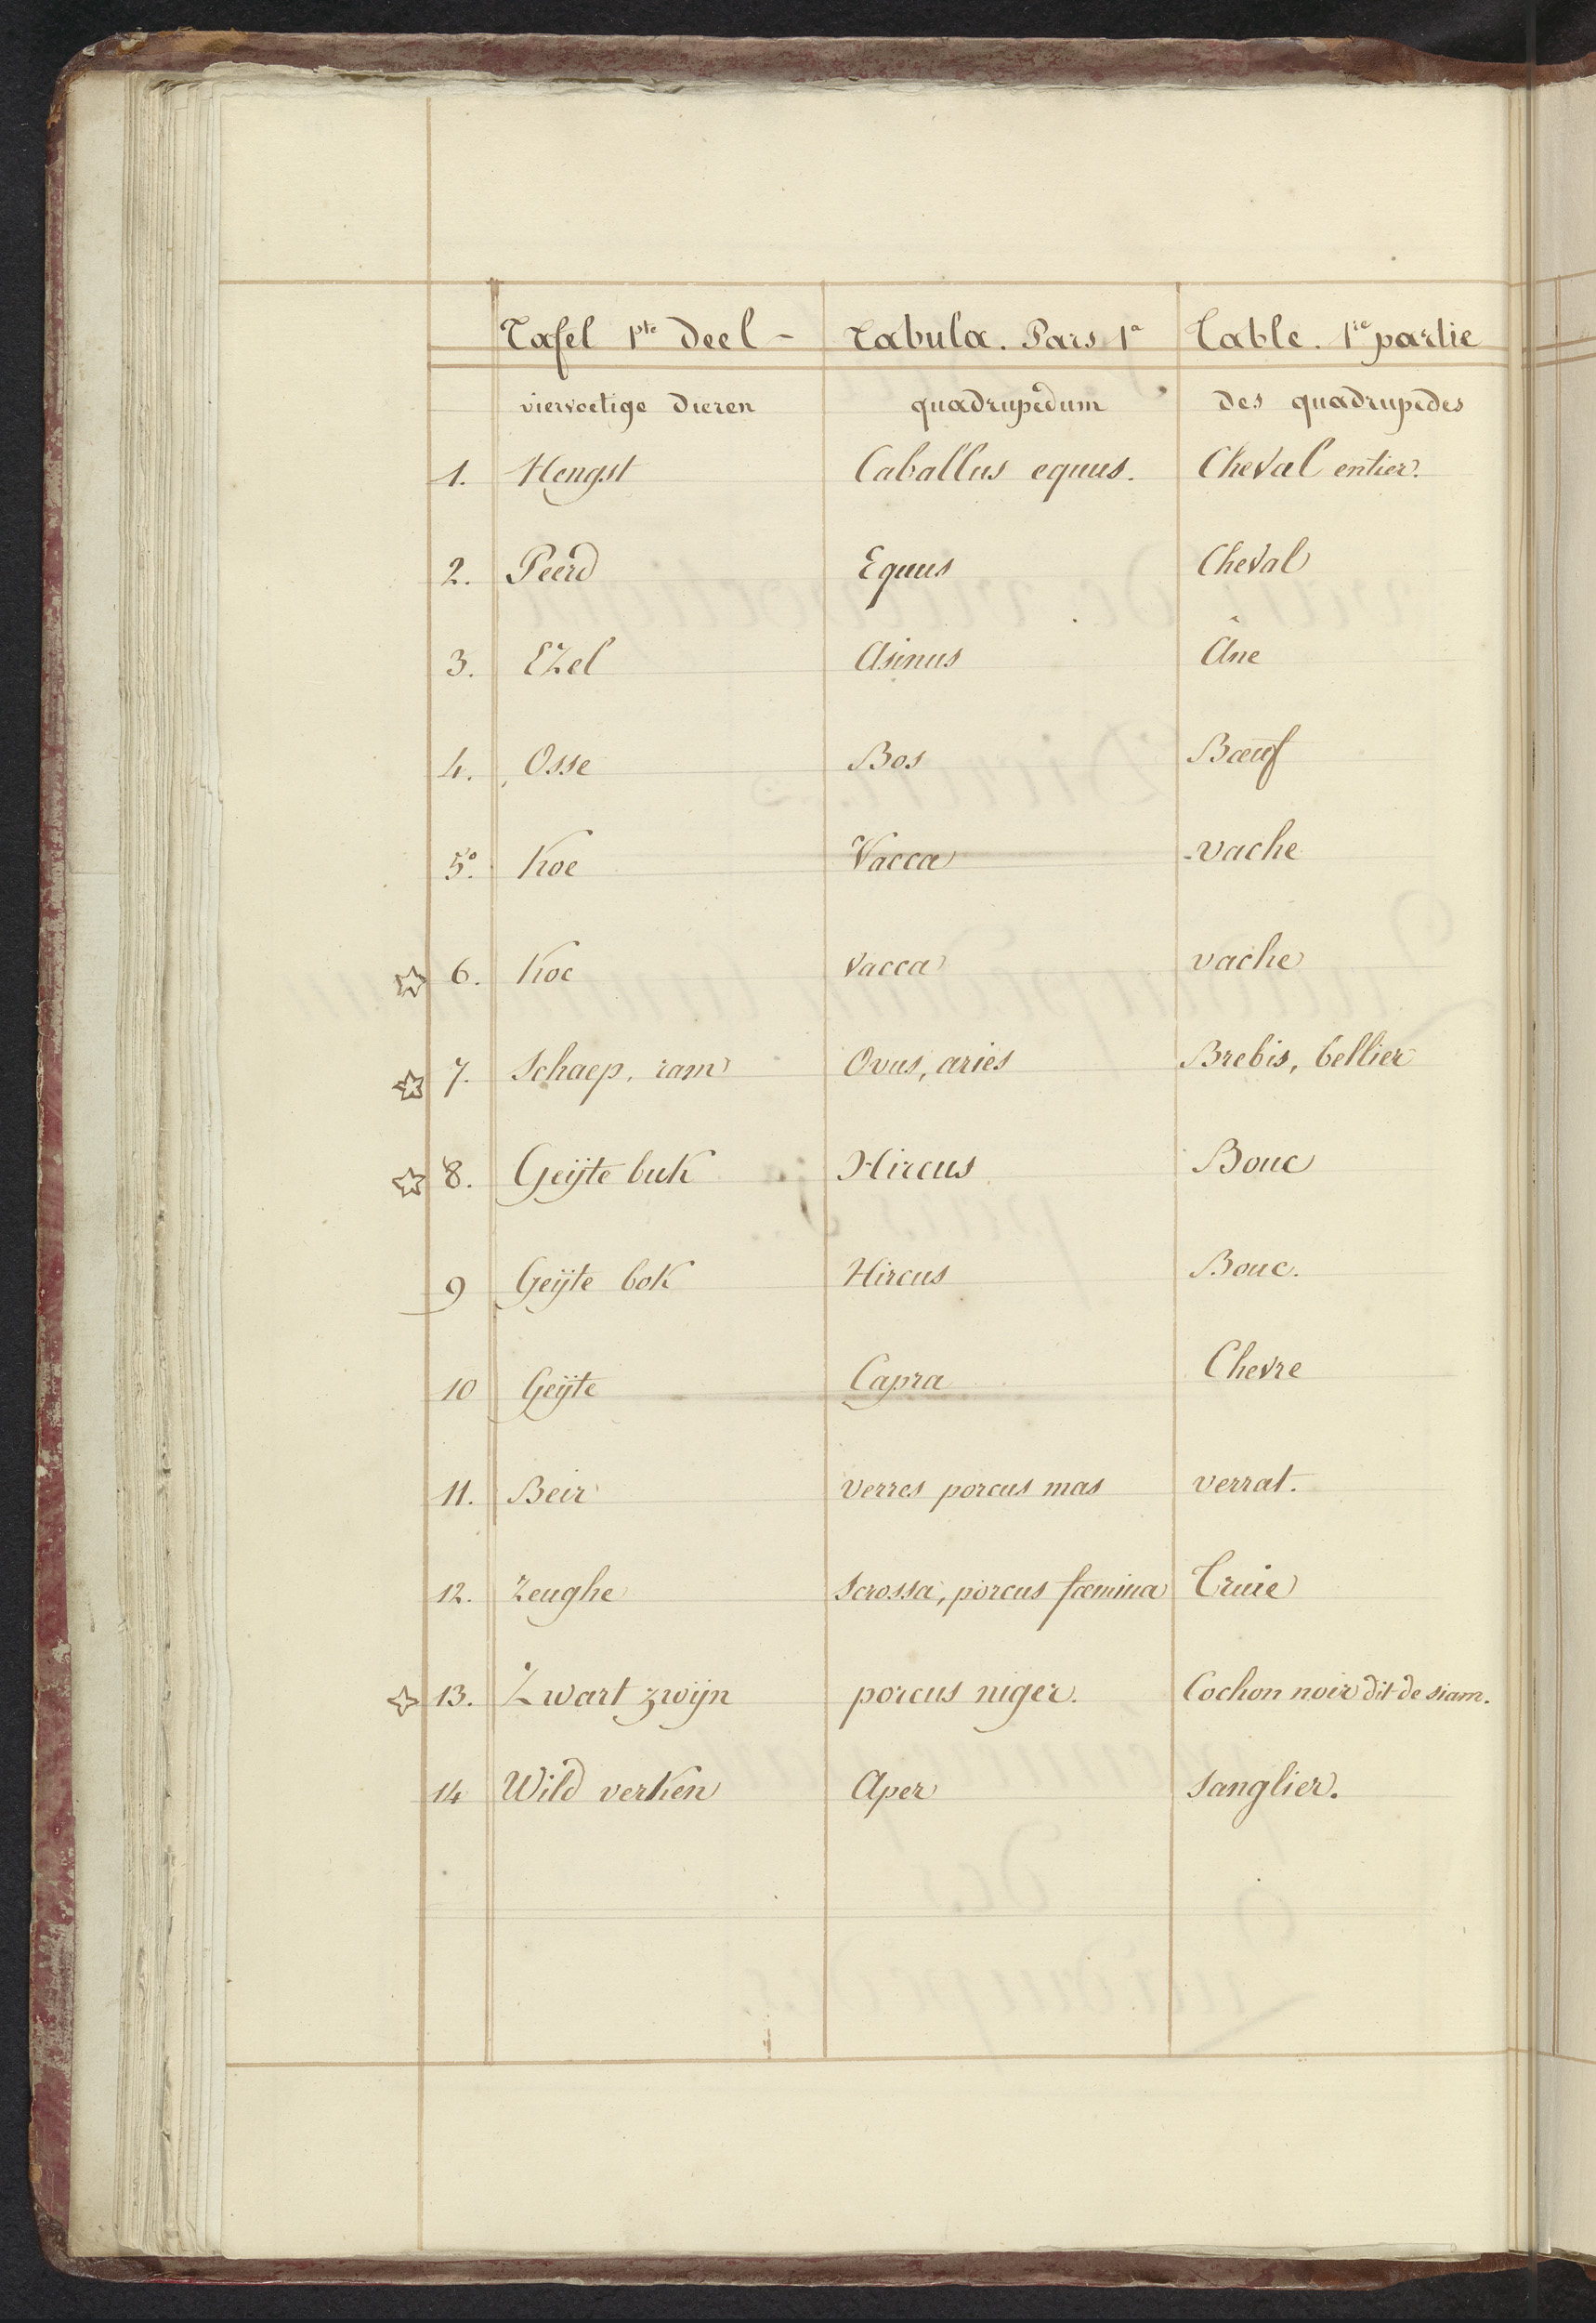 Tafel 1ste Deel - Tabula. Pars 1a Table. 1re partie
viervoetige Dieren quadrupedum des quadrupedes
1. Hengst Caballus equus. Cheval entier.
2. Peerd Equus Cheval
3. EZel Asinus Âne
4. Osse Bos Bœuf
5º. Koe Vacca vache
☆ 6. Koe vacca vache
☆ 7. Schaep, ram Ovus, aries Brebis, bellier
☆ 8. Geijte buk Hircus Bouc
9 Geijte bok Hircus Bouc.
10 Geijte Capra Chevre
11. Beir verres porcus mas verrat.
12. zeughe scrossa, porcus fæmina Truie
☆ 13. Zwart zwijn porcus niger. Cochon noir dit de siam.
14 Wild verken Aper sanglier.